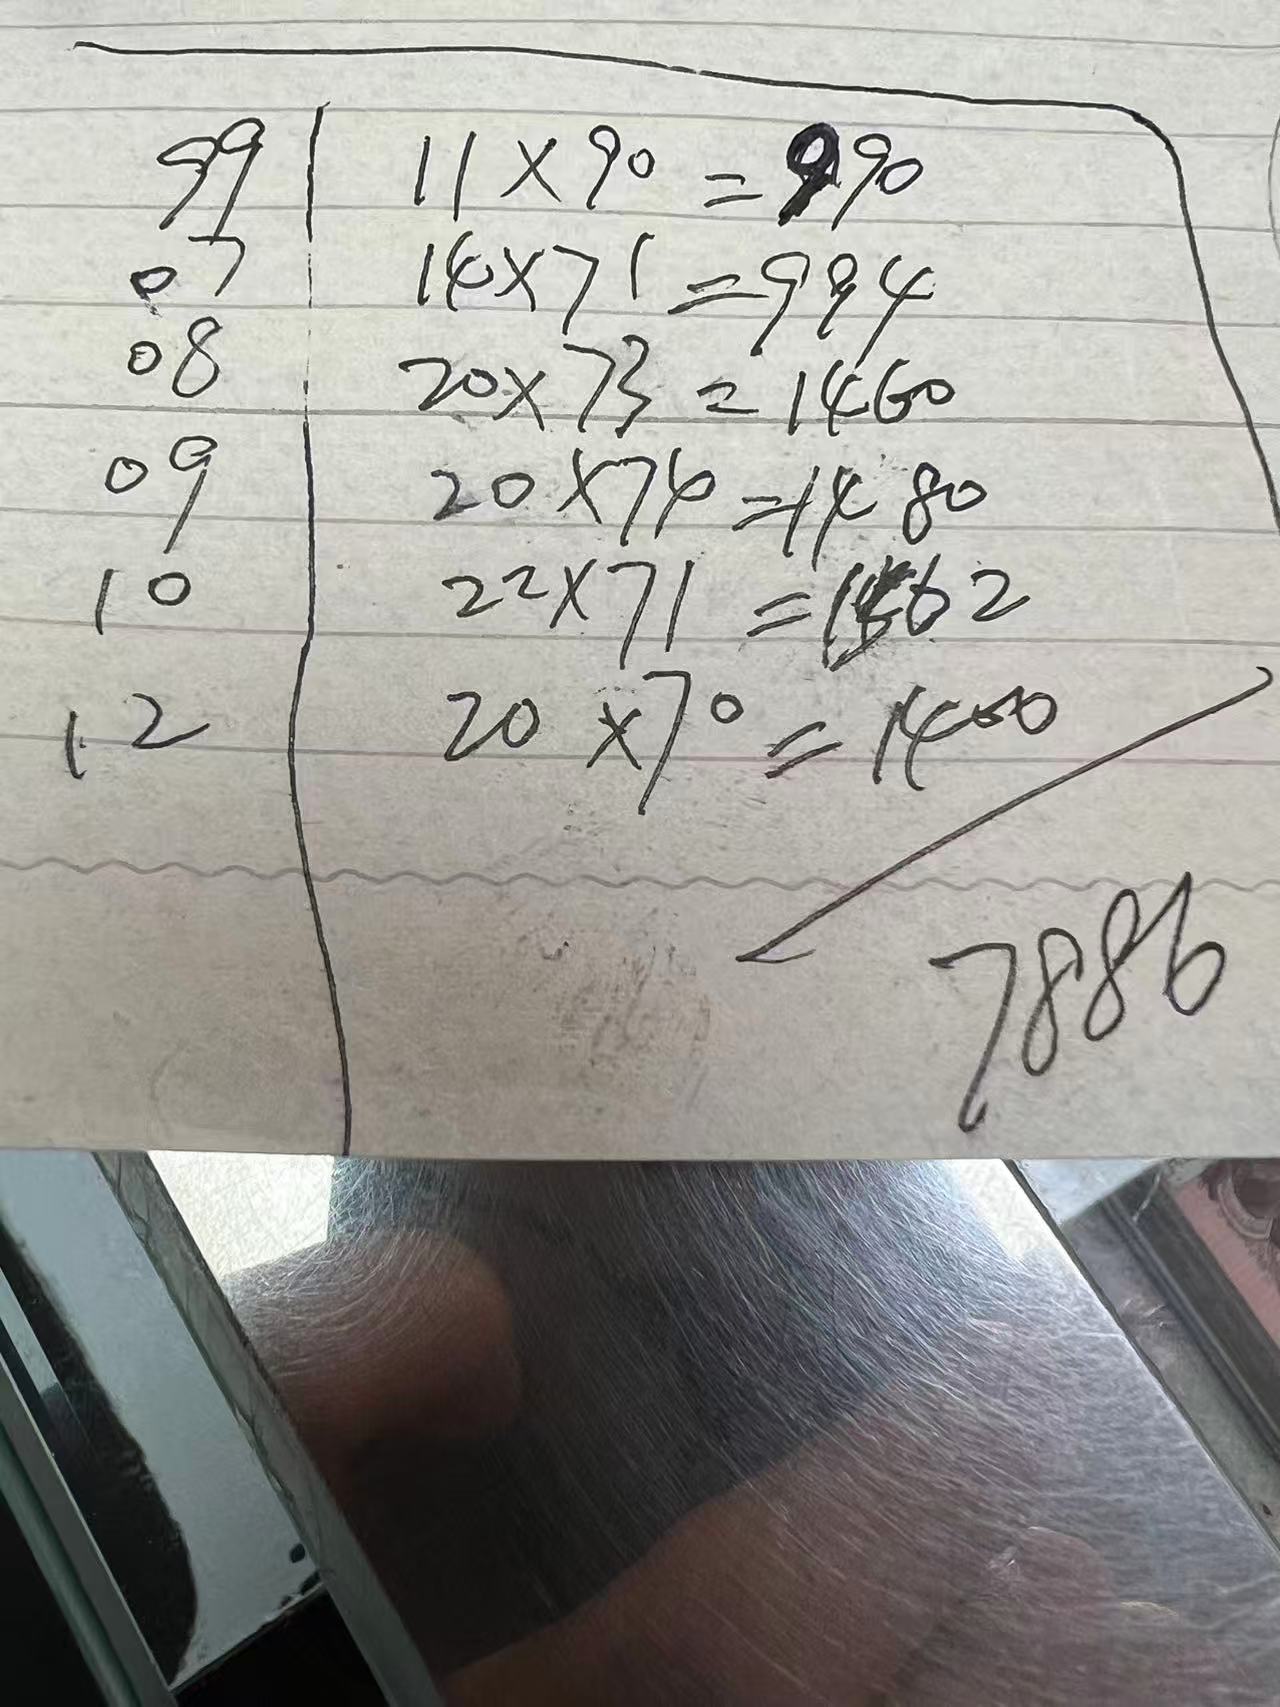 99 11×90=990
07 14×71=994
08 20×73=1460
09 20×74=1480
10 22×71=1562
12 20×70=1400
7886